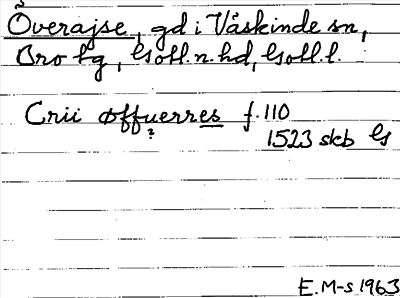 Överajse, gd i Väskinde sn,
Bro tg, Gotl. n. hd, Gotl. l.
Crii øffuerres f. 110
?
1523 skb Gs
E. M-s 1963